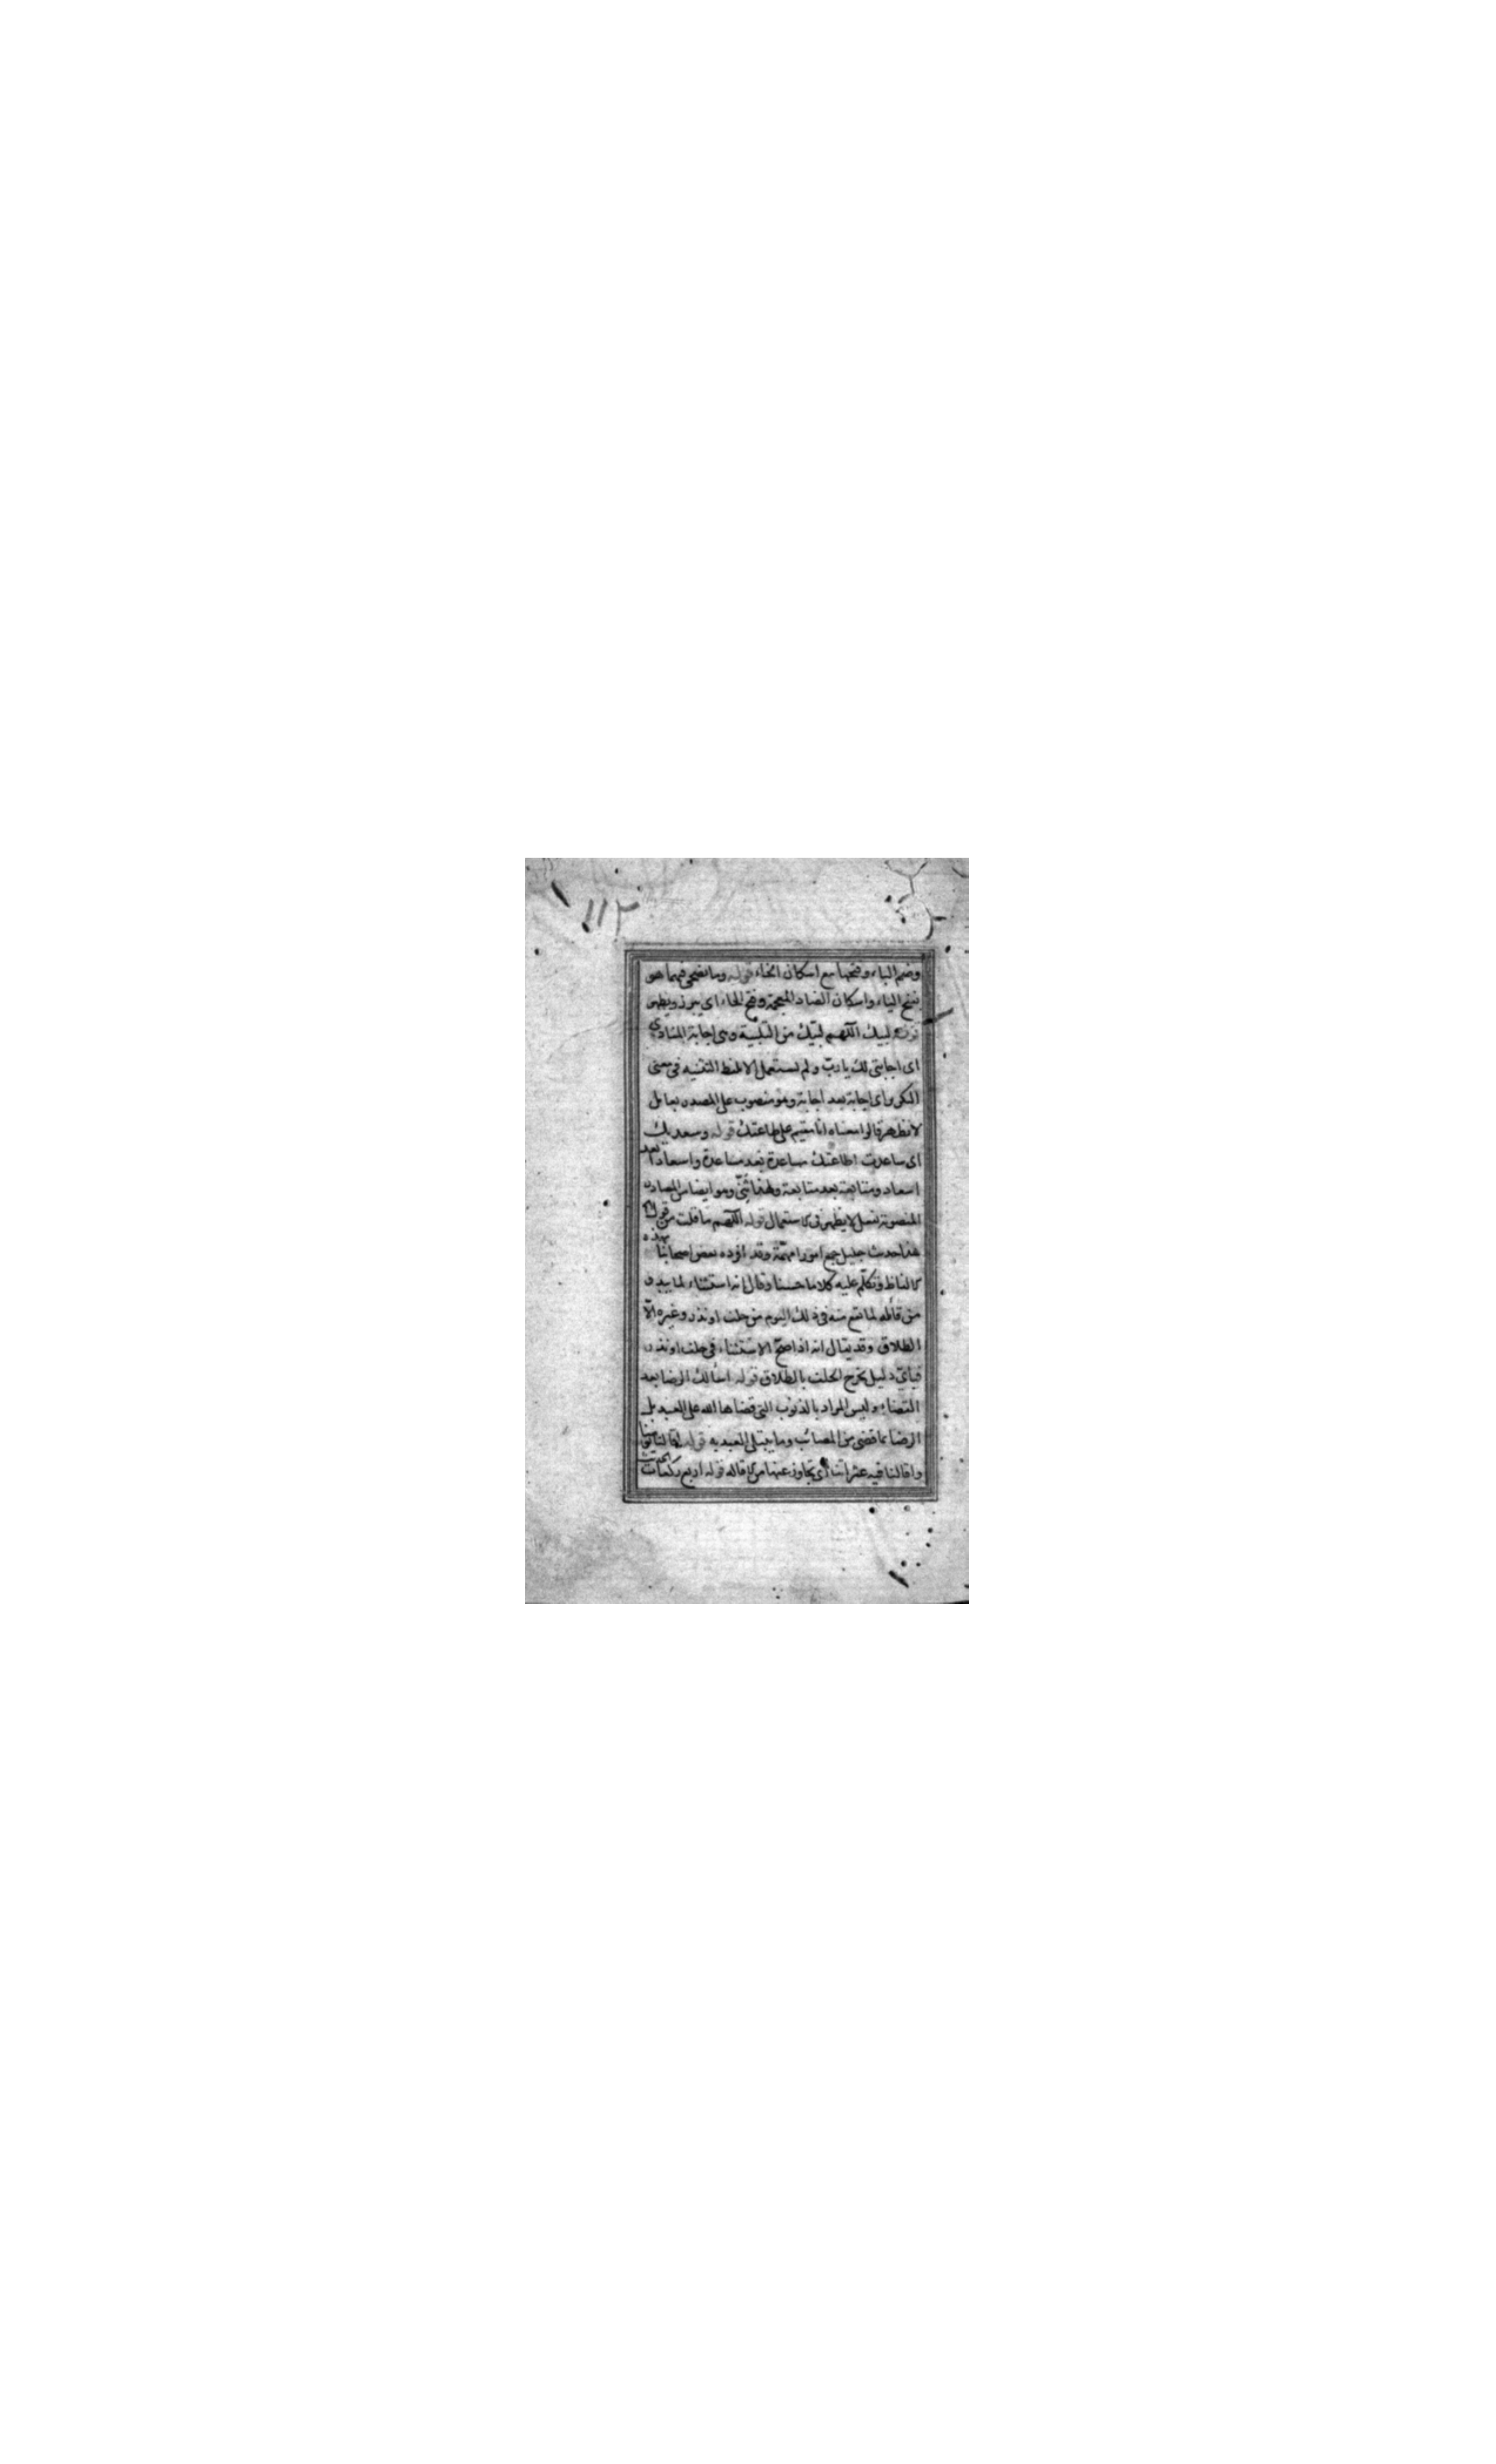 ١١٢
وضم الباء وفتحها مع اسكان الخاء قوله وما يضحى فيهما هو
بفتح الياء واسكان الضاد المعجمة وفتح الحاء اى يبرز ويظهر
قوله لبيك اللهم لبيك من التلبية وهى اجابة المنادى
اى اجابتى لك يا رب ولم يستعمل الا بلفظ التثنيه فى معنى
التكرير اى اجابة بعد اجابة وهو منصوب على المصدر بعامل
لا يظهر قالوا معناه انا مقيم على طاعتك قوله وسعديك
اى ساعدت اطاعتك مساعدة بعد مساعدة واسعادا بعد
اسعاد ومتابعة بعد متابعة ولهذا ثنى وهو ايضا من المصادر
المنصوبة بفعل لا يظهر فى الاستعمال قوله اللهم ما قلت من قول
هذا حديث جليل جمع امورا مهمة وقد افرده بعض اصحابنا بهذه
الالفاظ وتكلم عليه كلاما حسنا وقال انه استثناء لما يبدر
من قائله لما يقع منه فى ذلك اليوم من حلف او نذر وغيره الا
الطلاق وقد يقال انه اذا صح الاستثناء فى حلف او نذر
فباى دليل يخرج الحلف بالطلاق قوله اسألك الرضا بعد
القضاء وليس المراد بالذنوب التى قضاها الله على العبد بل
الرضا بما قضى من المصائب وما يبتلى العبد به قوله
واقالنا فيه عثراتنا اى تجاوز عنها من الاقاله قوله اربع ركعات